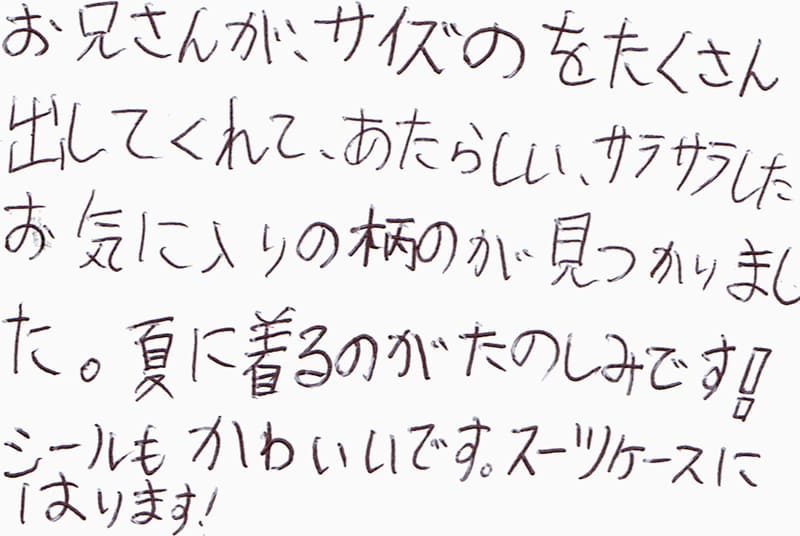 お兄さんが、サイズのをたくさん
出してくれて、あたらしい、サラサラした
お気に入りの柄のが見つかりまし
た。夏に着るのがたのしみです!
シールもかわいいです。スーツケースに
はります!